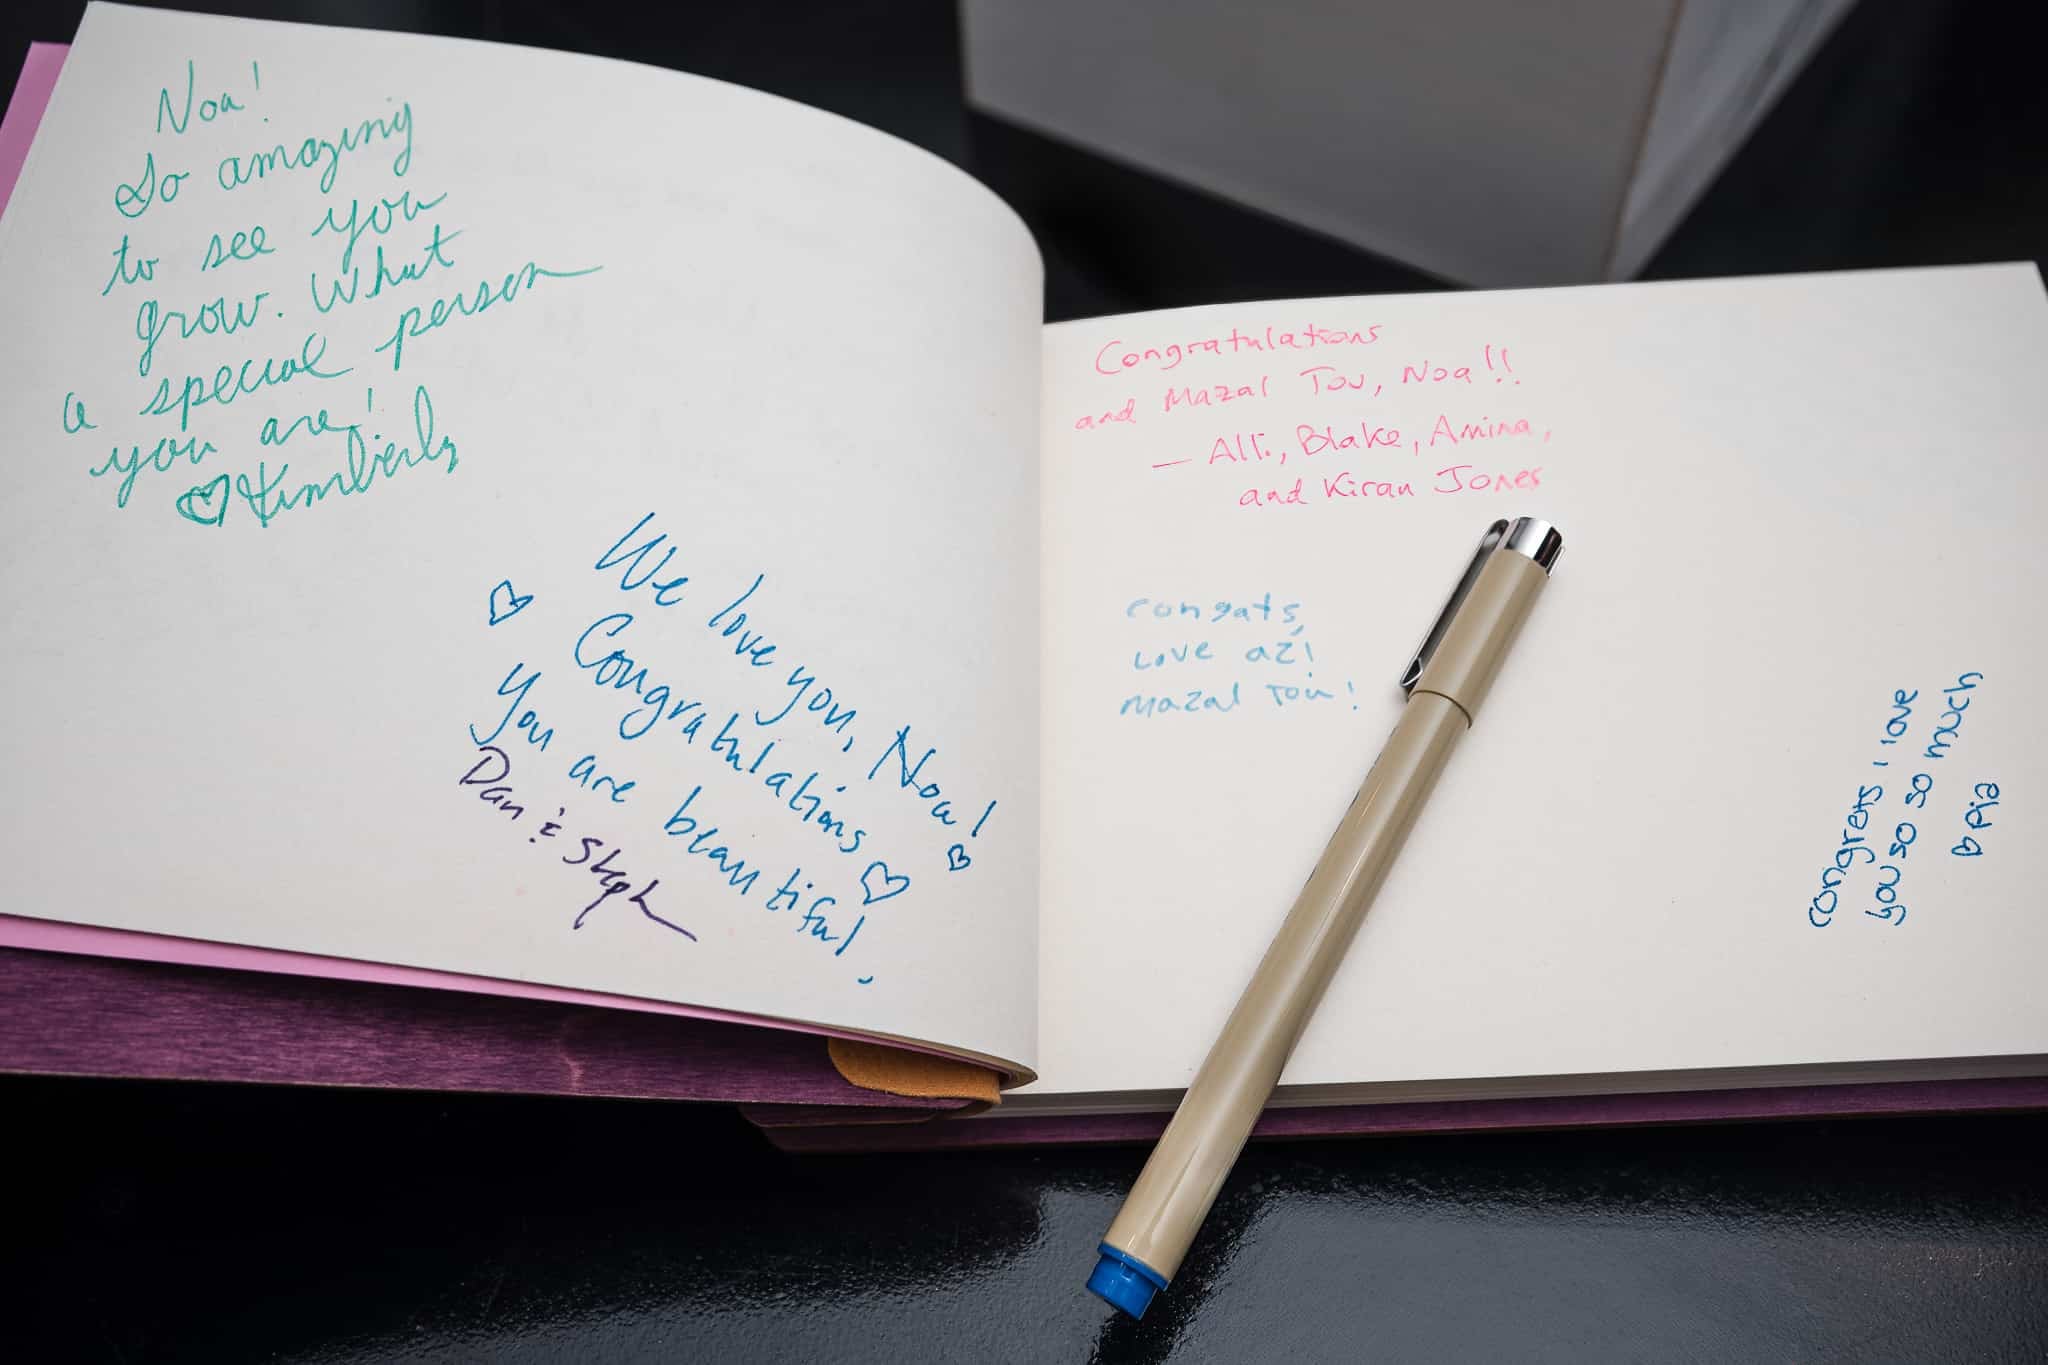 Noa!
So amazing
to see you
grow. What
a special person
you are!
♡ Kimberly
We love you, Noa!
Congratulations
You are beautiful,
Dan & Steph
Congratulations
and Mazal Tov, Noa!!
— Alli, Blake, Amina,
and Kiran Jones
congats,
Love az!
Mazal Tov!
congrats i love
you so so so much
♡ Pia